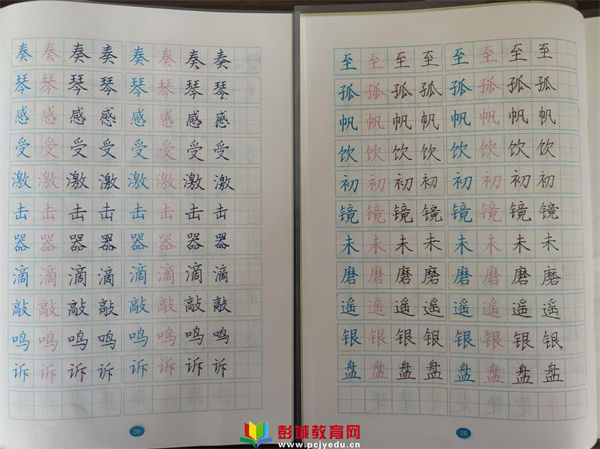 奏奏奏奏奏奏奏奏
琴琴琴琴琴琴琴琴
感感感感感感感感
受受受受受受受受
激激激激激激激激
击击击击击击击击
器器器器器器器器
滴滴滴滴滴滴滴滴
敲敲敲敲敲敲敲敲
鸣鸣鸣鸣鸣鸣鸣鸣
诉诉诉诉诉诉诉诉
至至至至至至至至
孤孤孤孤孤孤孤孤
帆帆帆帆帆帆帆帆
饮饮饮饮饮饮饮饮
初初初初初初初初
镜镜镜镜镜镜镜镜
未未未未未未未未
磨磨磨磨磨磨磨磨
遥遥遥遥遥遥遥遥
银银银银银银银银
盘盘盘盘盘盘盘盘
彭城教育网
www.pcjyedu.cn